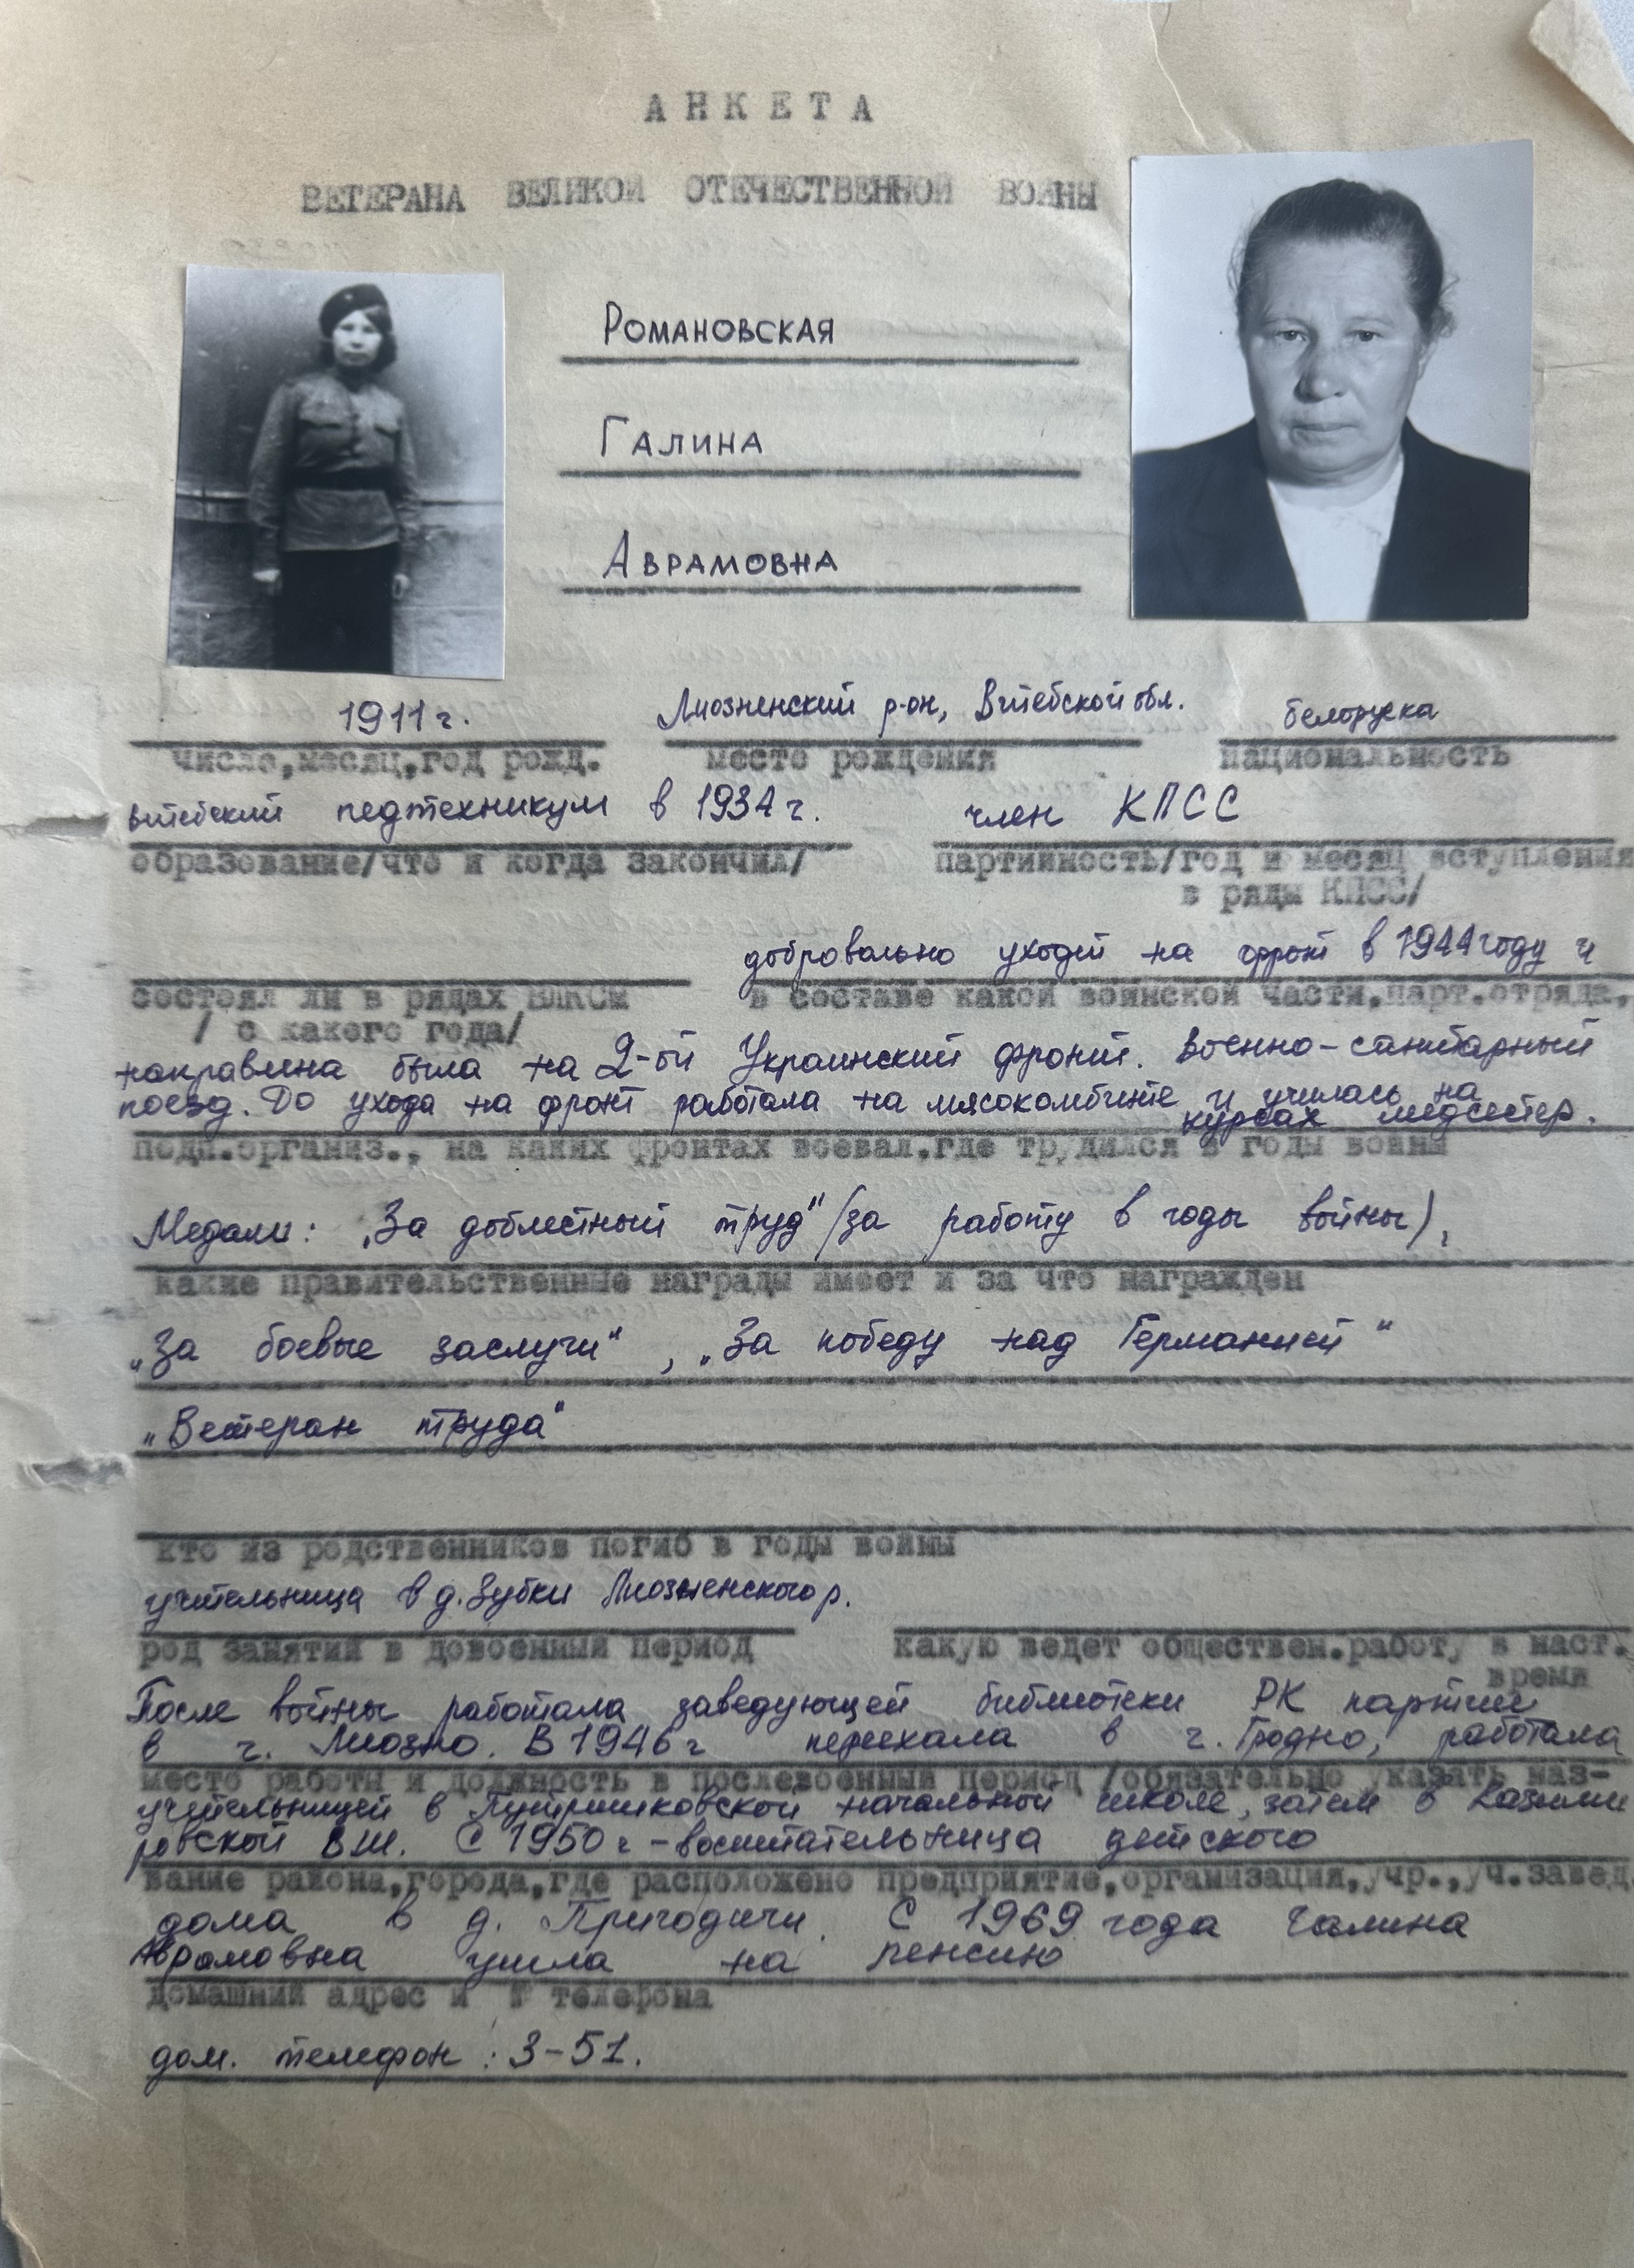 АНКЕТА
ВЕТЕРАНА ВЕЛИКОЙ ОТЕЧЕСТВЕННОЙ ВОЙНЫ
РОМАНОВСКАЯ
ГАЛИНА
АВРАМОВНА
1911 г.
Лиозненский р-он, Витебской обл.
белоруска
число, месяц, год рожд.
место рождения
национальность
Витебский педтехникум в 1934 г.
член КПСС
образование/что и когда закончил/
партийность/год и месяц вступления
в ряды КПСС/
добровально уходит на фронт в 1944 году и
состоял ли в рядах ВЛКСМ
в составе какой воинской части, парт.отряда,
/ с какого года/
направлена была на 2-ой Украинский фронт. Военно-санитарный
поезд. До ухода на фронт работала на мясокомбинате и училась на
курсах медсестер.
подп.организ., на каких фронтах воевал, где трудился в годы войны
Медали: „За доблестный труд" (за работу в годы войны),
какие правительственные награды имеет и за что награжден
„За боевые заслуги", „За победу над Германией"
„Ветеран труда"
кто из родственников погиб в годы войны
учительница в д. Зубки Лиозненского р.
род занятий в довоенный период
какую ведет обществен.работу в наст.
время
После войны работала заведующей библиотеки РК партии
в г. Лиозно. В 1946 г переехала в г. Гродно, работала
место работы и должность в послевоенный период /обязательно указать наз-
учительницей в Путришковской начальной школе, затем в Казими
ровской ВШ. С 1950 г - воспитательница детского
вание района, города, где расположено предприятие, организация, учр., уч.завед.
дома в д. Пригодичи. С 1969 года Галина
Аврамовна ушла на пенсию
домашний адрес и № телефона
дом. телефон: 3-51.